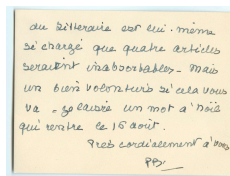 du littéraire est lui-même
si chargé que quatre articles
seraient inabsorbables - Mais
un bien volontiers si cela vous
va - je laisse un mot à
qui rentre le 16 août.
Très cordialement à vous